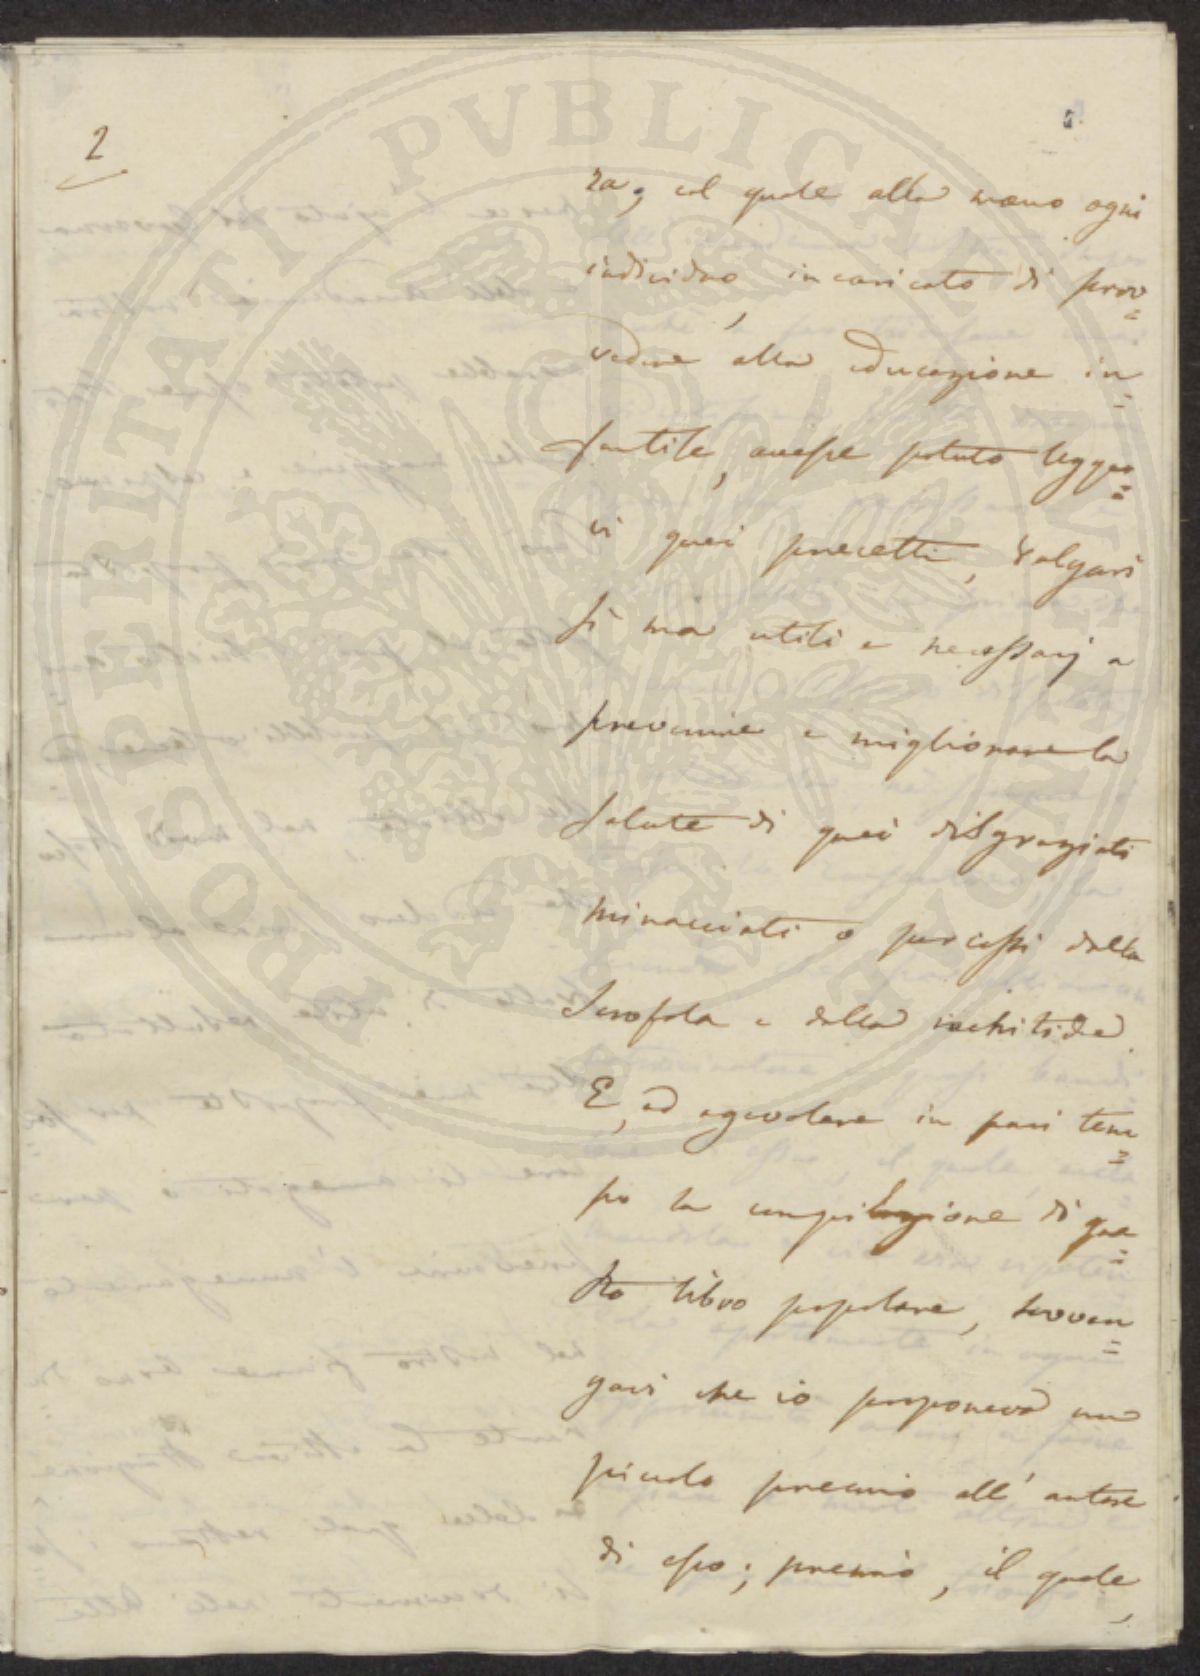 2
za; col quale alla mano ogni
individuo, incaricato di prov=
vedere alla educazione in=
fantile, avesse potuto legger=
vi quei precetti, volgari
sì ma utili e necessarj a
prevenire e migliorare la
salute di quei disgraziati
minacciati o percossi dalla
Scrofola e dalla rachitide.
E, ad agevolare in pari tem=
po la compilazione di que=
sto libro popolare, sovven=
gavi che io proponeva un
piccolo premio all'autore
di esso; premio, il quale,
PROSPERITATI PVBLICAE AVGENDAE